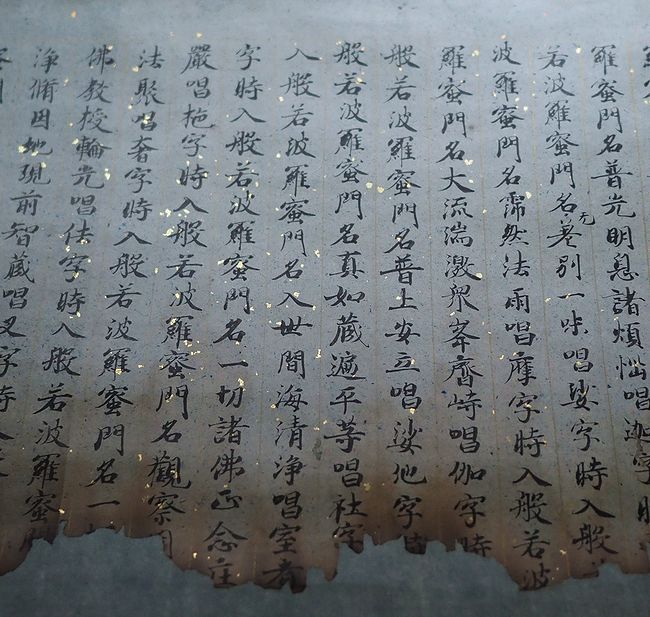 羅蜜門名普光明息諸煩惱唱迦字時
若波羅蜜門名无差別一味唱娑字時入般
波羅蜜門名霈然法雨唱摩字時入般若波
羅蜜門名大流湍激衆峯齊峙唱伽字時
般若波羅蜜門名普上安立唱娑他字時
般若波羅蜜門名真如藏遍平等唱社字
入般若波羅蜜門名入世間海清淨唱室者
字時入般若波羅蜜門名一切諸佛正念庄
嚴唱柂字時入般若波羅蜜門名觀察
法聚唱奢字時入般若波羅蜜門名一
佛教授輪光唱佉字時入般若波羅蜜門
淨脩因地現前智藏唱叉字時入